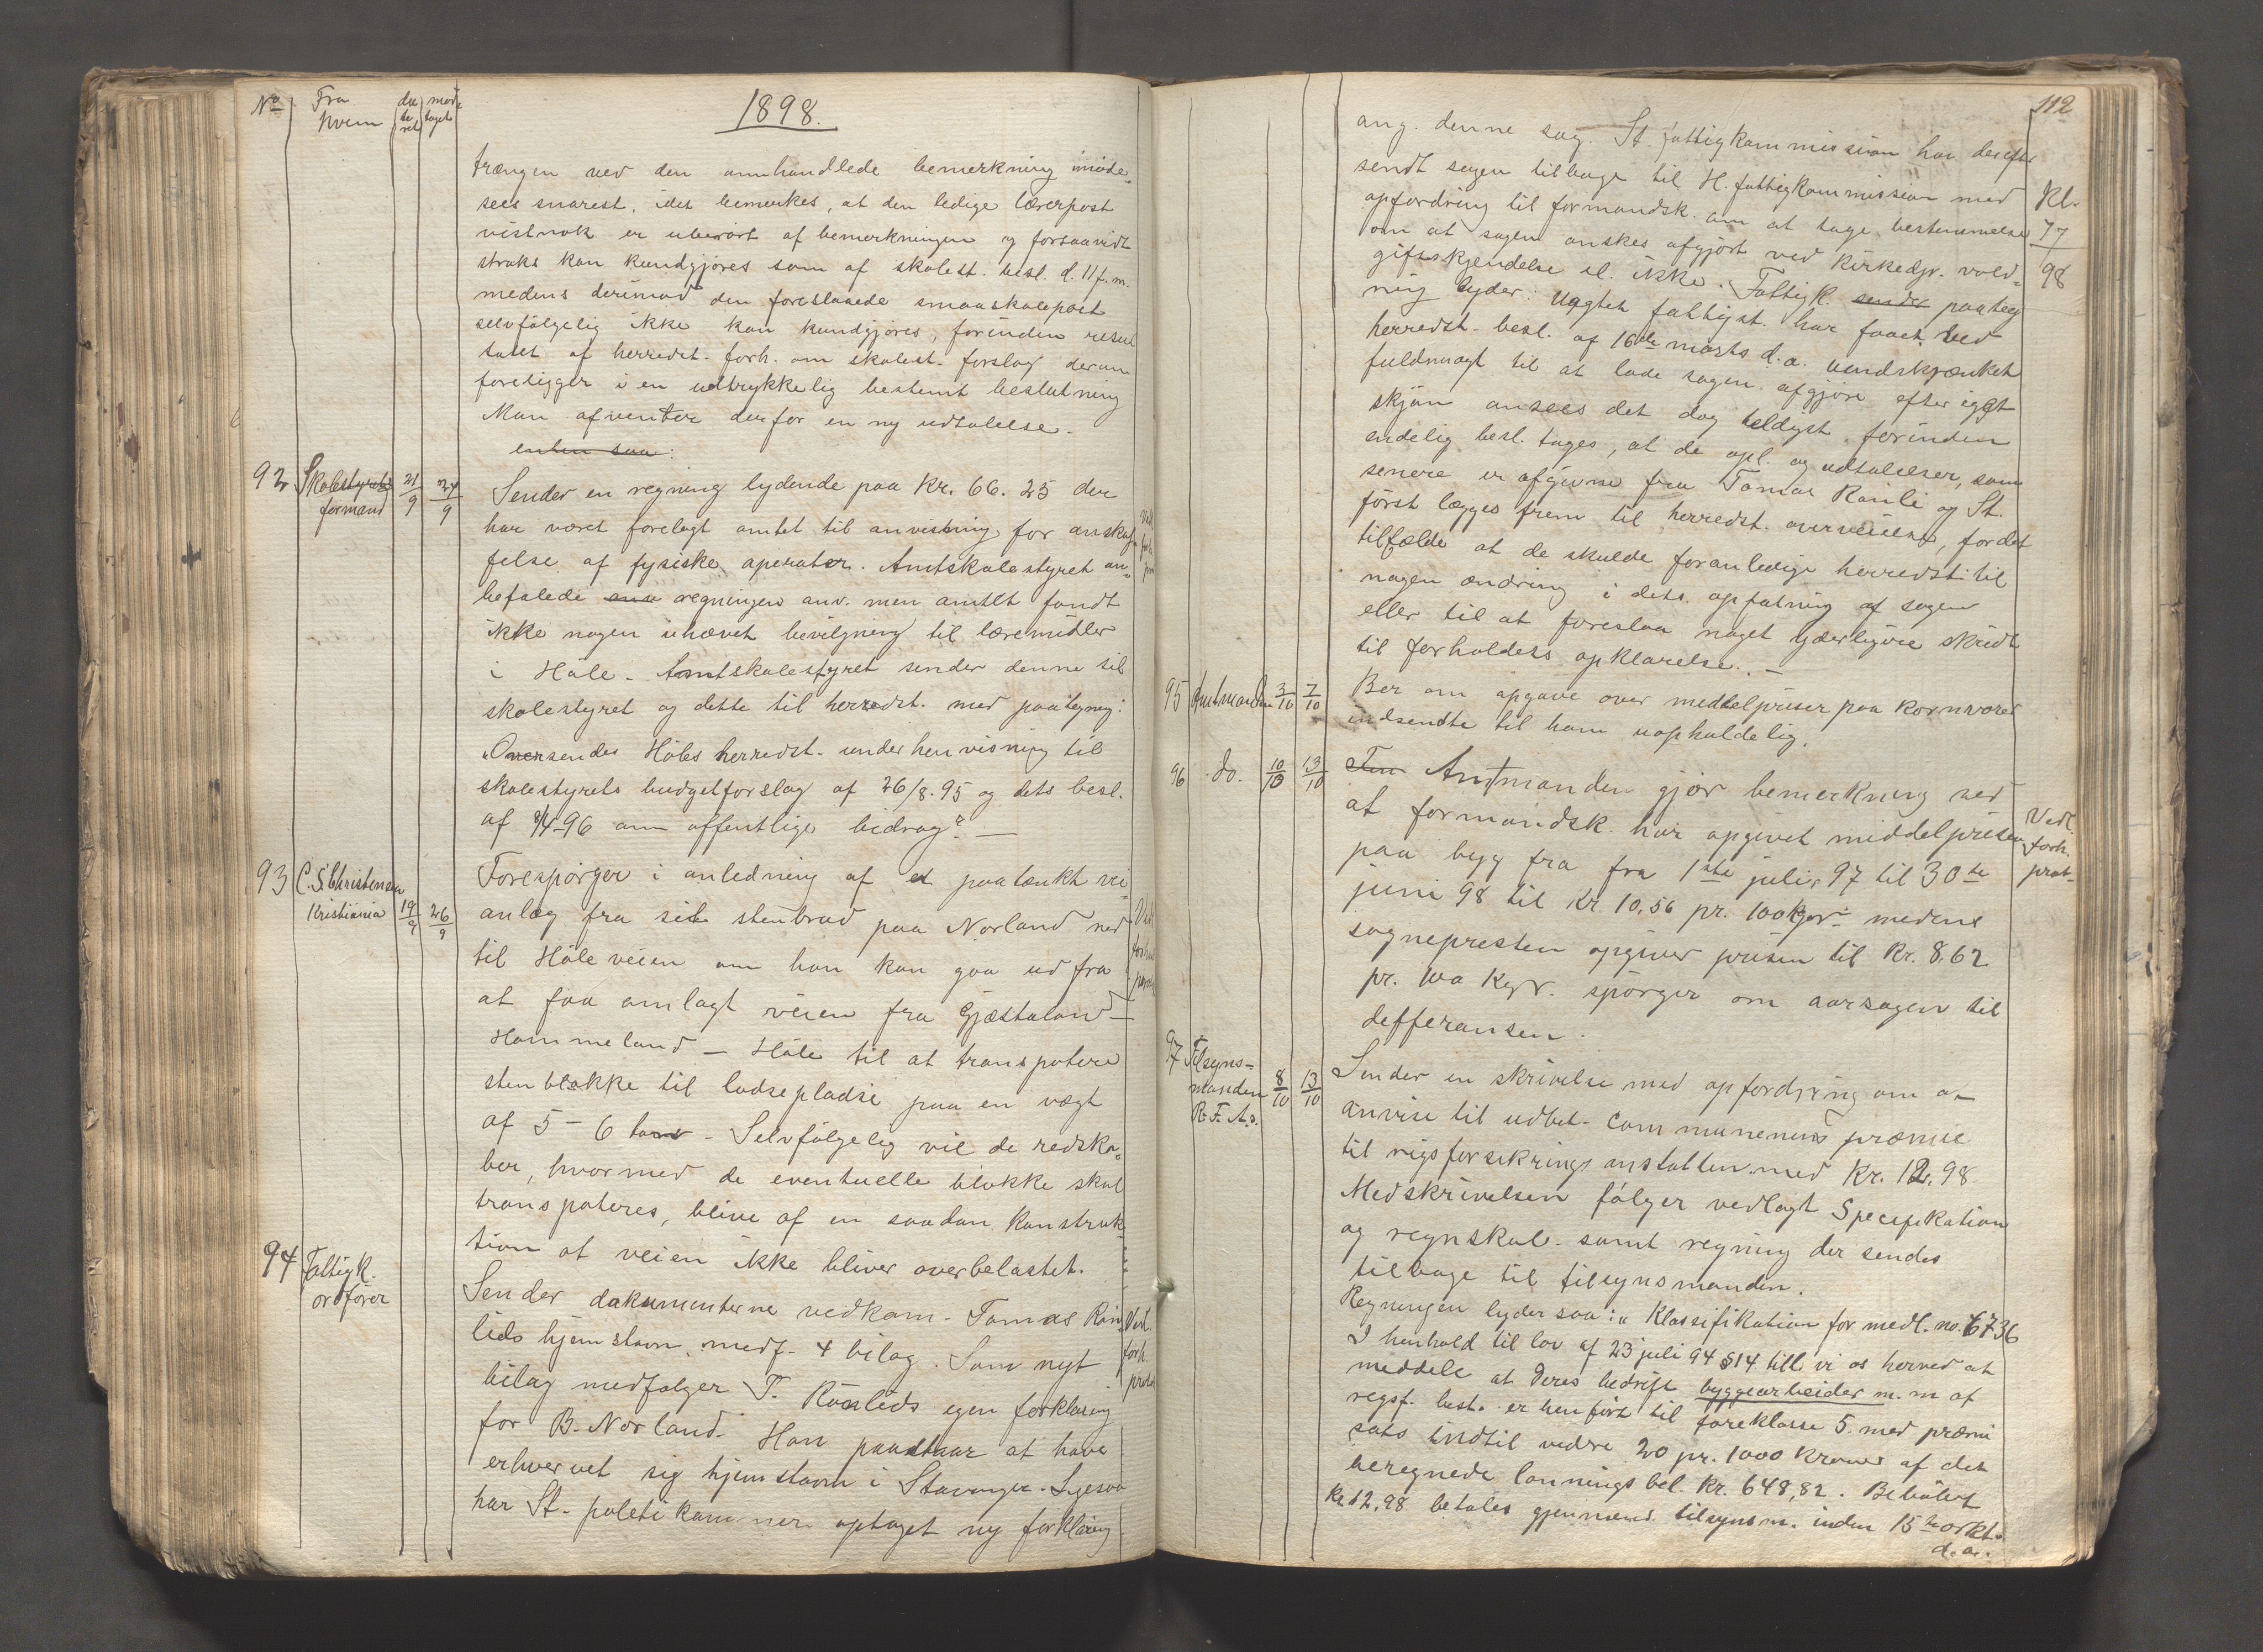 No
Fra
hvem
da
te
ret
mod
taget
1898.
trængen ved den omhandlede bemerkning imøde-
sees snarest, idet bemerkes, at den ledige lærerpost
vistnok er uberørt af bemerkningen og forsaavidt
straks kan kundgjøres som af skolest. besl. d. 11 f. m.
medens derimod den foreslaaede smaaskolepost
selvfølgelig ikke kan kundgjøres, forinden resul
tatet af herredst. forh. om skolest. forslag derom
foreligger i en udtrykkelig bestemt beslutning
Man afventer derfor en ny udtalelse.
enten saa:
92 Skolestyrets
formand
21/9 24/9
Sender en regning lydende paa Kr. 66.25 der
har været forelagt amtet til anvisning for anskaf-
felse af fysiske aperater. Amtskolestyret an-
befalede regningen anv. men amtet fandt
ikke nogen uhævet bevilgning til læremidler
i Høle. Amtskolestyret sender denne til
skolestyret og dette til herredst. med paategning:
"Oversendes Høles herredst. under henvisning til
skolestyrets budgetforslag af 26/8.95 og dets besl.
af 8/4-96 om offentlige bidrag". —
93 C. S. Christensen
Kristiania
19/9 26/9
Forespørger i anledning af et paatænkt vei
anlæg fra sit stenbrud paa Norland ned
til Høleveien om han kan gaa ud fra
at faa omlagt veien fra Gjæstaland —
Hommeland — Høle til at transpotere
stenblokke til ladseplads paa en vægt
af 5 – 6 tons. Selvfølgelig vil de redska-
ber, hvormed de eventuelle blokke skal
transpoteres, blive af en saadan konstruk
tion at veien ikke bliver overbelastet.
Ved.
forh.
prot.
94 Fattigk.
ordfører
Sender dokumenterne vedkom. Tomas Røn-
lids hjemstavn, medf. 4 bilag. Som nyt
bilag medfølger T. Rønlids egen forklaring
for B. Norland. Han paastaar at have
erhvervet sig hjemstavn i Stavanger. Ligesaa
har St. politikammer optaget ny forklaring
Vedl.
forh.
prot.
112
ang. denne sag. St. fattigkommission har derefter
sendt sagen tilbage til H. fattigkommission med
opfordring til formandsk. om at tage bestemmelse
om at sagen ønskes afgjort ved kirkedpr. vold-
giftskjendelse el. ikke. Fattigk. sender paateg
ning lyder: Uagtet fattigst. har faaet ved
herredst. besl. af 16de marts d. a. uindskrænket
fuldmagt til at lade sagen afgjøre efter eget
skjøn ansees det dog heldigst, forinden
endelig besl. tages, at de opl. og udtalelser, som
senere er afgivne fra Tomas Rønli og St.
først lægges frem til herredst. overveielse, for det
tilfælde at de skulde foranledige herredst. til
nogen ændring i dets opfatning af sagen
eller til at foreslaa noget yderligere skridt
til forholdets opklarelse. —
Kl.
77
98
95 Amtmanden 3/10 7/10
Ber om opgave over middelpriser paa kornvarer
indsendte til ham uopholdelig.
96 do. 10/10 13/10
Amtmanden gjør bemerkning ved
at formandsk. har opgivet middelprisen
paa byg fra fra 1ste juli 97 til 30te
juni 98 til kr. 10,56 pr. 100 kgr. medens
sognepresten opgiver prisen til kr. 8,62
pr. 100 kgr. spørger om aarsagen til
defferansen.
Vedl.
forh.
prot.
97 Tilsyns-
manden
R. F. A.
8/10 13/10
Sender en skrivelse med opfordring om a-
anvise til udbet. communenens præmie
til rigsforsikringsanstalten med kr. 12,98.
Med skrivelsen følger vedlagt Specifikation
og regnskab samt regning der sendes
tilbage til tilsynsmanden.
Regningen lyder saa: "Klassifikation for medl. no. 6736
I henhold til lov af 23 juli 94 §14 till. vi os herved at
meddele at Deres bedrift byggearbeider m. m af
regsf. best. er henført til fareklasse 5 med præmi
sats indtil vedre 20 pr. 1000 kroner af det
beregnede lønningsbel. kr. 648,82. Beløbet
kr. 12,98 betales gjennem tilsynsm. inden 15de okt.
d. a.